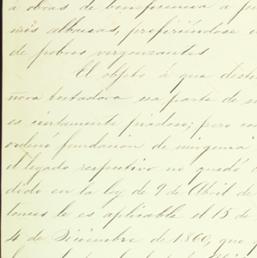 á obras de beneficencia á ju
mis albaceas, prefiriéndose
de pobres vergonzantes
El objeto á que dest
ñora testadora esa parte de
es ciertamente piadoso; pero
ordenó fundación de ninguna
el legado respectivo no quedó
dido en la ley de 9 de Abril de
tonces le es aplicable el 15 de
4 de Diciembre de 1860, que